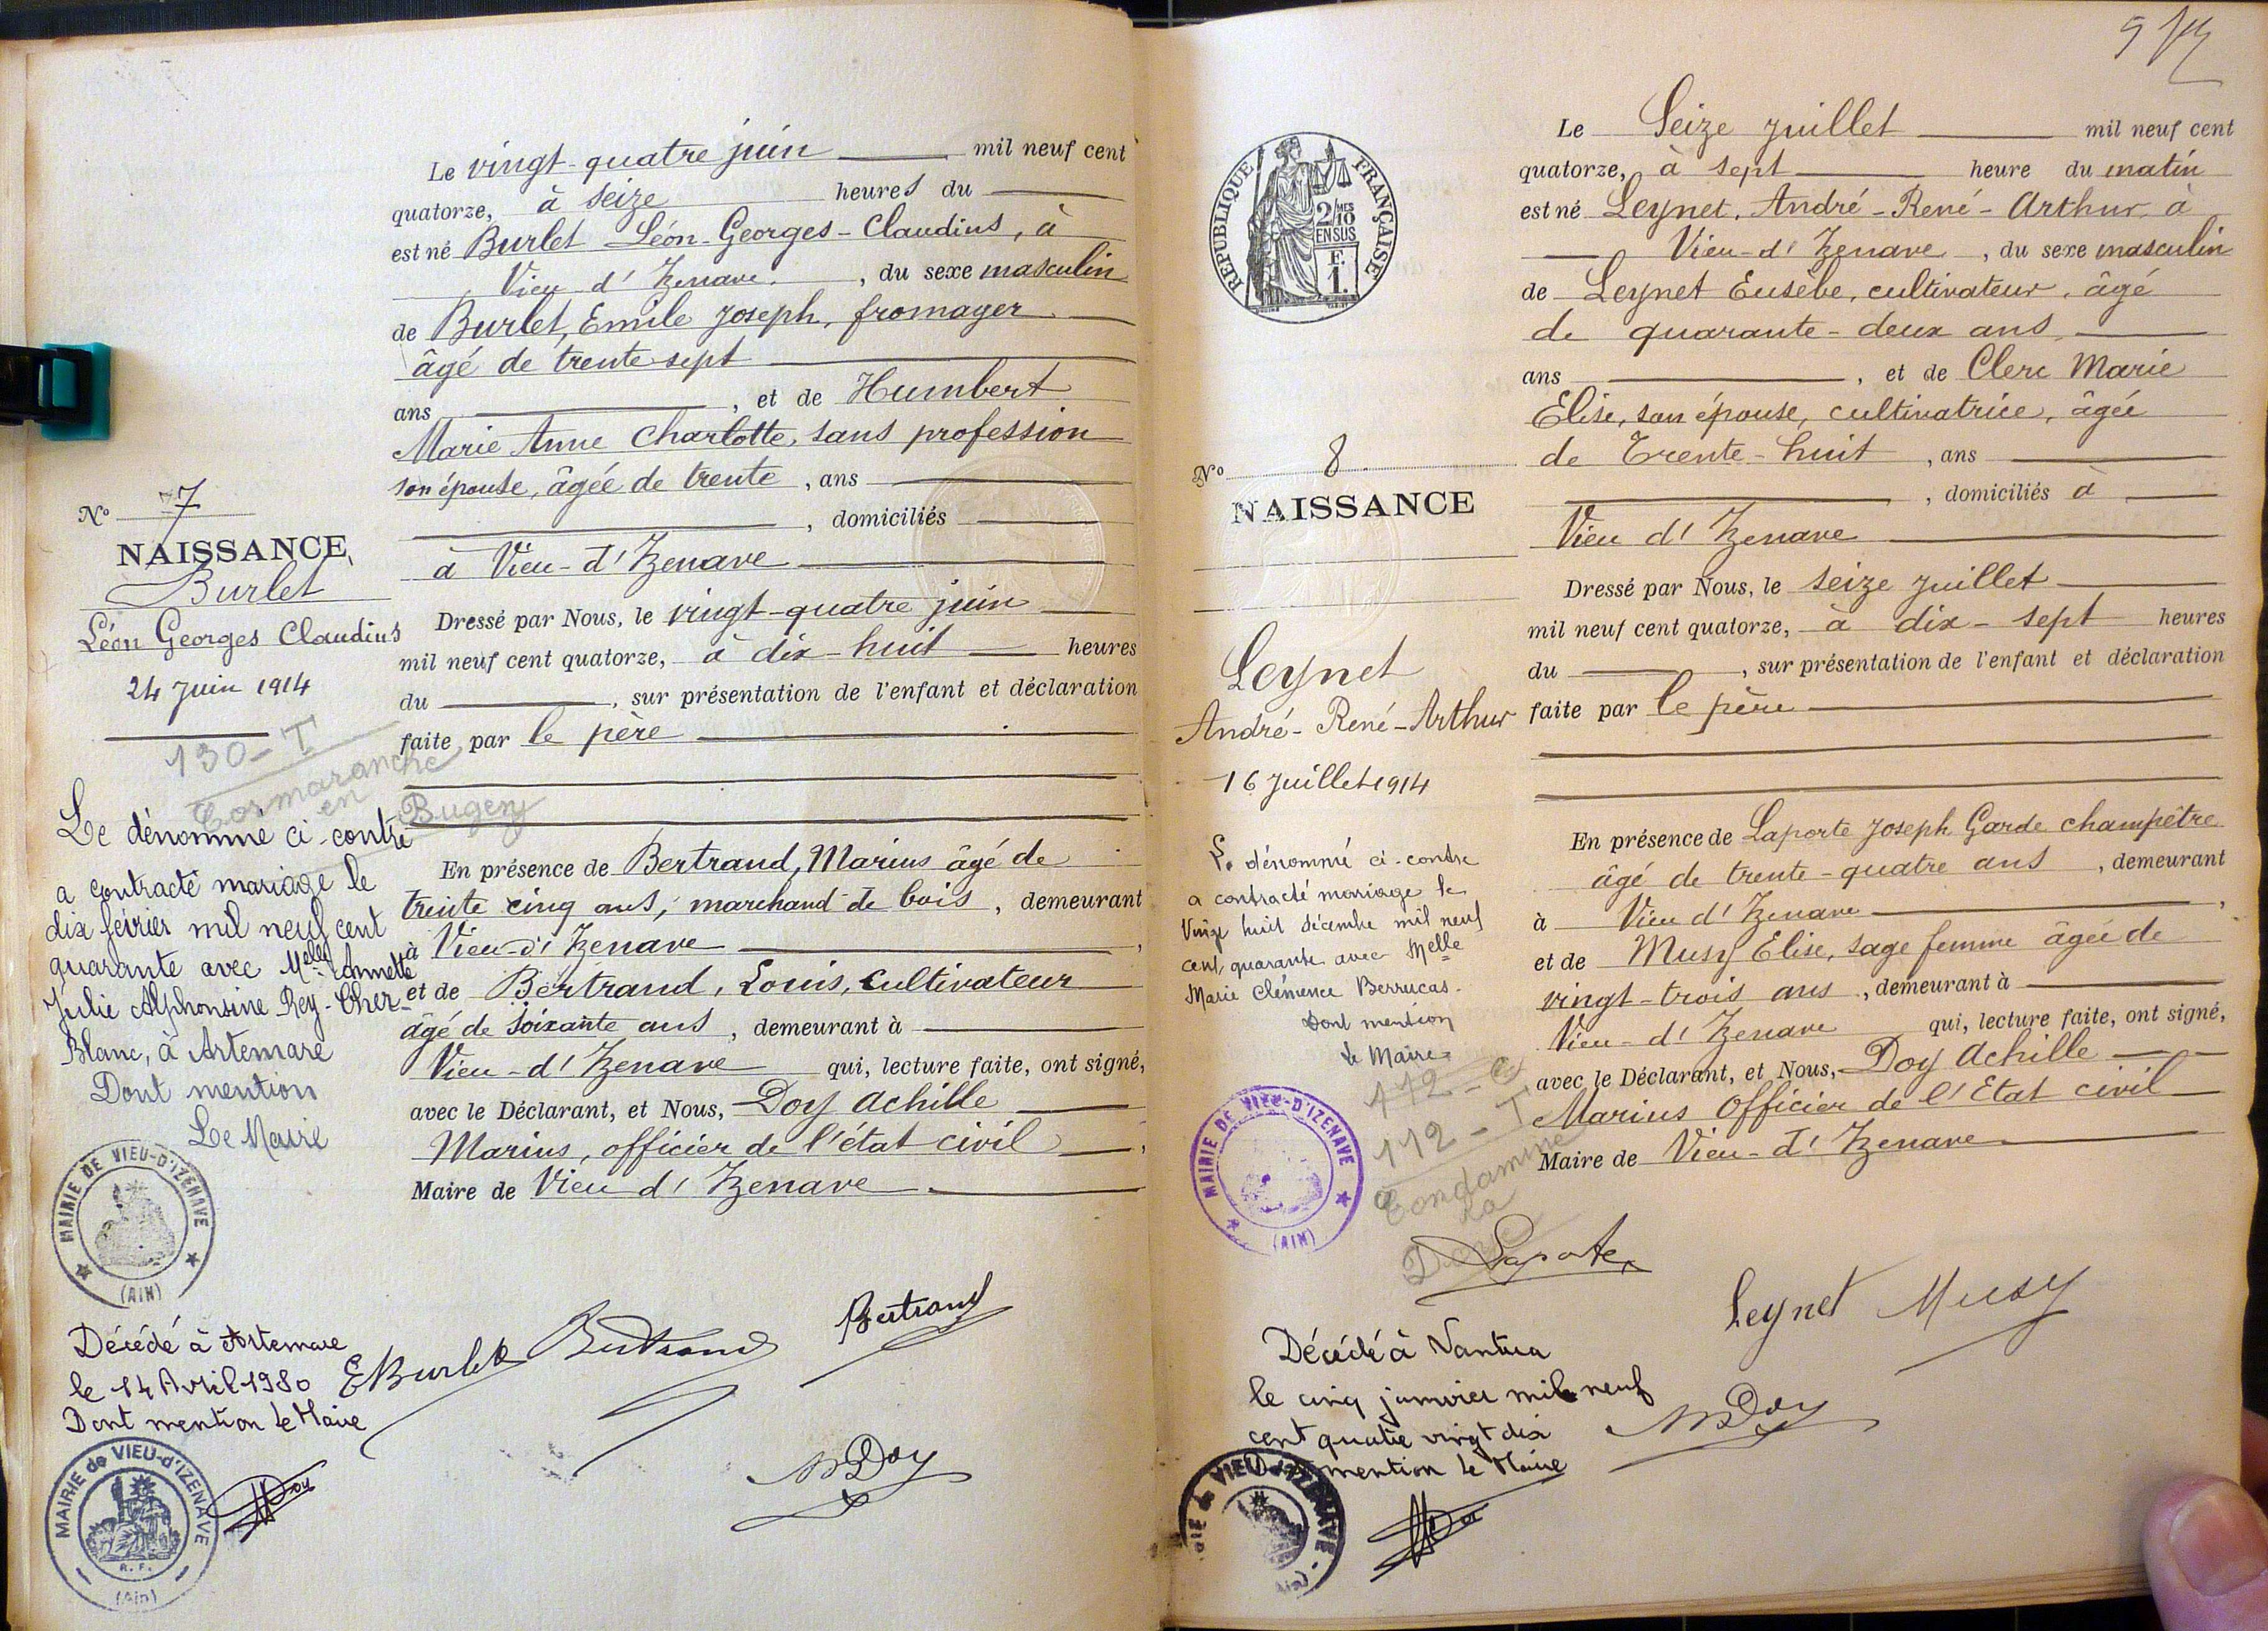 Le vingt-quatre juin mil neuf cent
quatorze, à seize heures du
est né Burlet Léon-Georges-Claudius, à
Vieu d'Izenave, du sexe masculin
de Burlet, Emile Joseph, fromager
âgé de trente sept
ans, et de Humbert
Marie Anne Charlotte, sans profession
son épouse, âgée de trente, ans
, domiciliés
à Vieu-d'Izenave
Dressé par Nous, le vingt-quatre juin
mil neuf cent quatorze, à dix-huit heures
du, sur présentation de l'enfant et déclaration
faite par le père
En présence de Bertrand, Marius âgé de
trente cinq ans, marchand de bois, demeurant
à Vieu-d'Izenave,
et de Bertrand, Louis, cultivateur
âgé de soixante ans, demeurant à
Vieu-d'Izenave qui, lecture faite, ont signé,
avec le Déclarant, et Nous, Doy Achille
Marius, officier de l'état civil,
Maire de Vieu d'Izenave.
No 7
NAISSANCE
Burlet
Léon Georges Claudius
24 Juin 1914
130-T
Cormaranche
en
Bugey
Le dénommé ci-contre
a contracté mariage le
dix février mil neuf cent
quarante avec Melle Annette
Julie Alphonsine Rey-Cher-
Blanc, à Artemare
Dont mention
Le Maire
MAIRIE DE VIEU-D'IZENAVE
(AIN)
Décédé à Artemare
le 14 Avril 1980
Dont mention le Maire
MAIRIE de VIEU-d'IZENAVE
R.F.
(Ain)
EBurlet
Bertrand
Bertrand
MDoy
REPUBLIQUE FRANÇAISE
2/10 MES
EN SUS
F.
1.
Le Seize juillet mil neuf cent
quatorze, à sept heure du matin
est né Leynet, André-René-Arthur, à
Vieu-d'Izenave, du sexe masculin
de Leynet Eusèbe, cultivateur, âgé
de quarante-deux ans,
ans, et de Clerc Marie
Elise, son épouse, cultivatrice, âgée
de Trente-huit, ans
, domiciliés à
Vieu d'Izenave
Dressé par Nous, le seize juillet
mil neuf cent quatorze, à dix-sept heures
du, sur présentation de l'enfant et déclaration
faite par le père
En présence de Laporte Joseph Garde champêtre
âgé de trente-quatre ans, demeurant
à Vieu d'Izenave,
et de Musy Elise, sage femme âgée de
vingt-trois ans, demeurant à
Vieu-d'Izenave qui, lecture faite, ont signé,
avec le Déclarant, et Nous, Doy Achille
Marius Officier de l'Etat civil
Maire de Vieu-d'Izenave
No 8
NAISSANCE
Leynet
André-René-Arthur
16 Juillet 1914
Le dénommé ci-contre
a contracté mariage le
Vingt huit décembre mil neuf
cent quarante avec Melle
Marie Clémence Berrucas.
Dont mention
Le Maire
112-C
112-T
Condamine
la
Doye
MAIRIE DE VIEU-D'IZENAVE
(AIN)
Laporte
Leynet
Musy
MDoy
Décédé à Nantua
le cinq janvier mil neuf
cent quatre vingt dix
Dont mention le Maire